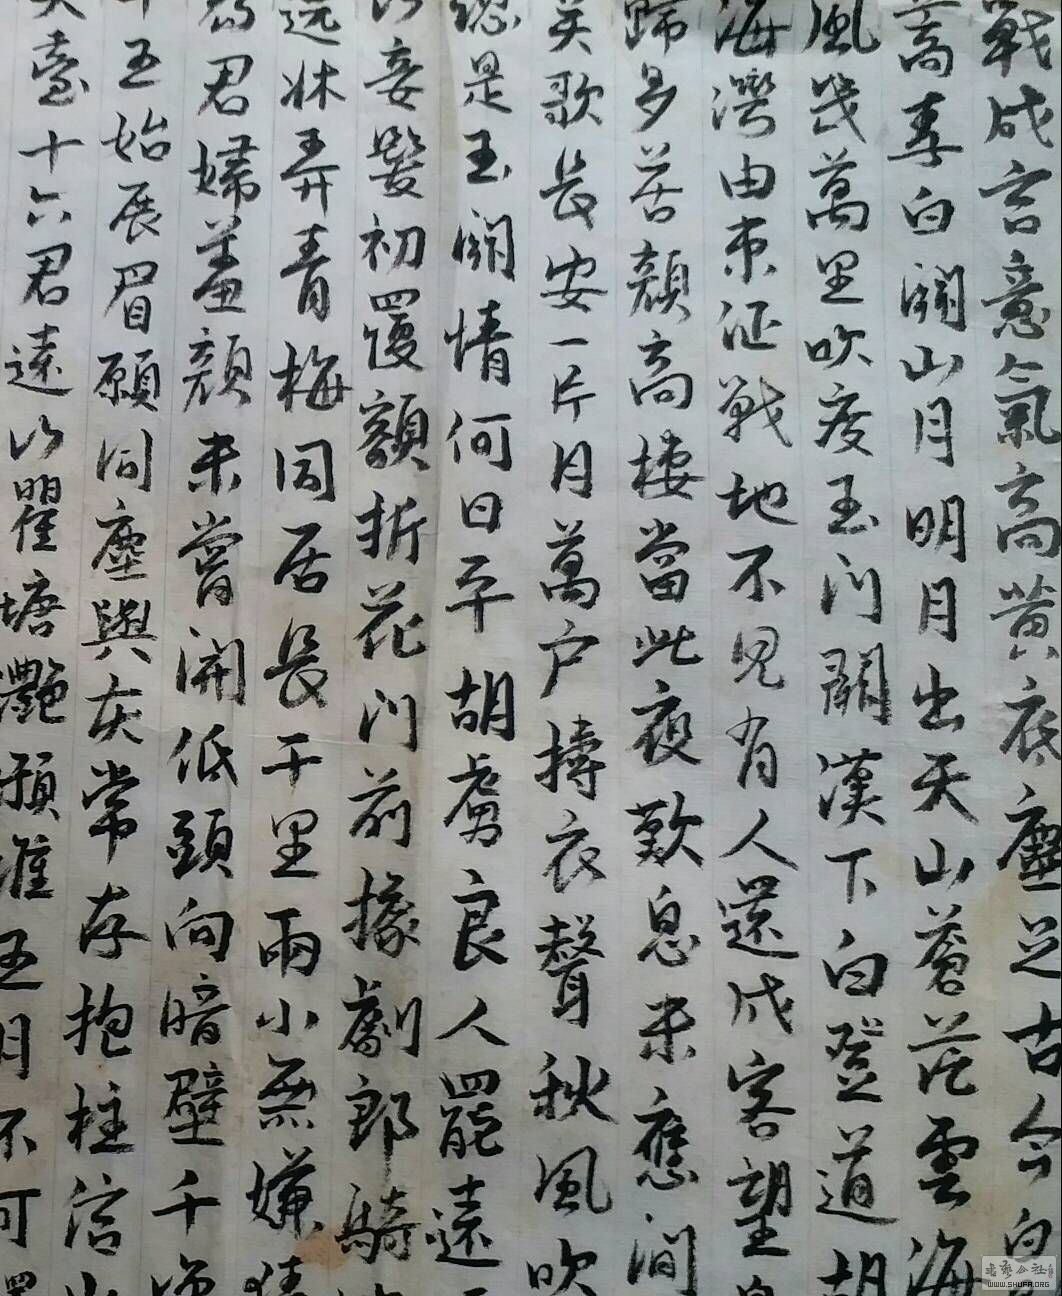 戰咸言意氣高黃塵足古今白
蒿李白關山月明月出天山蒼茫雲海
風幾萬里吹度玉門關漢下白登道胡
海灣由來征戰地不見有人還戍客望
歸多苦顏高樓當此夜歎息未應閒
英歌長安一片月萬户擣衣聲秋風吹
總是玉關情何日平胡虜良人罷遠
妾髮初覆額折花門前據劇郎騎
遶牀弄青梅同居長干里兩小無嫌猜
為君婦羞顏未嘗開低頭向暗壁千
十五始展眉願同塵與灰常存抱柱信
臺十六君遠行瞿塘灩澦堆五月不可
WWW.SHUFA.ORG